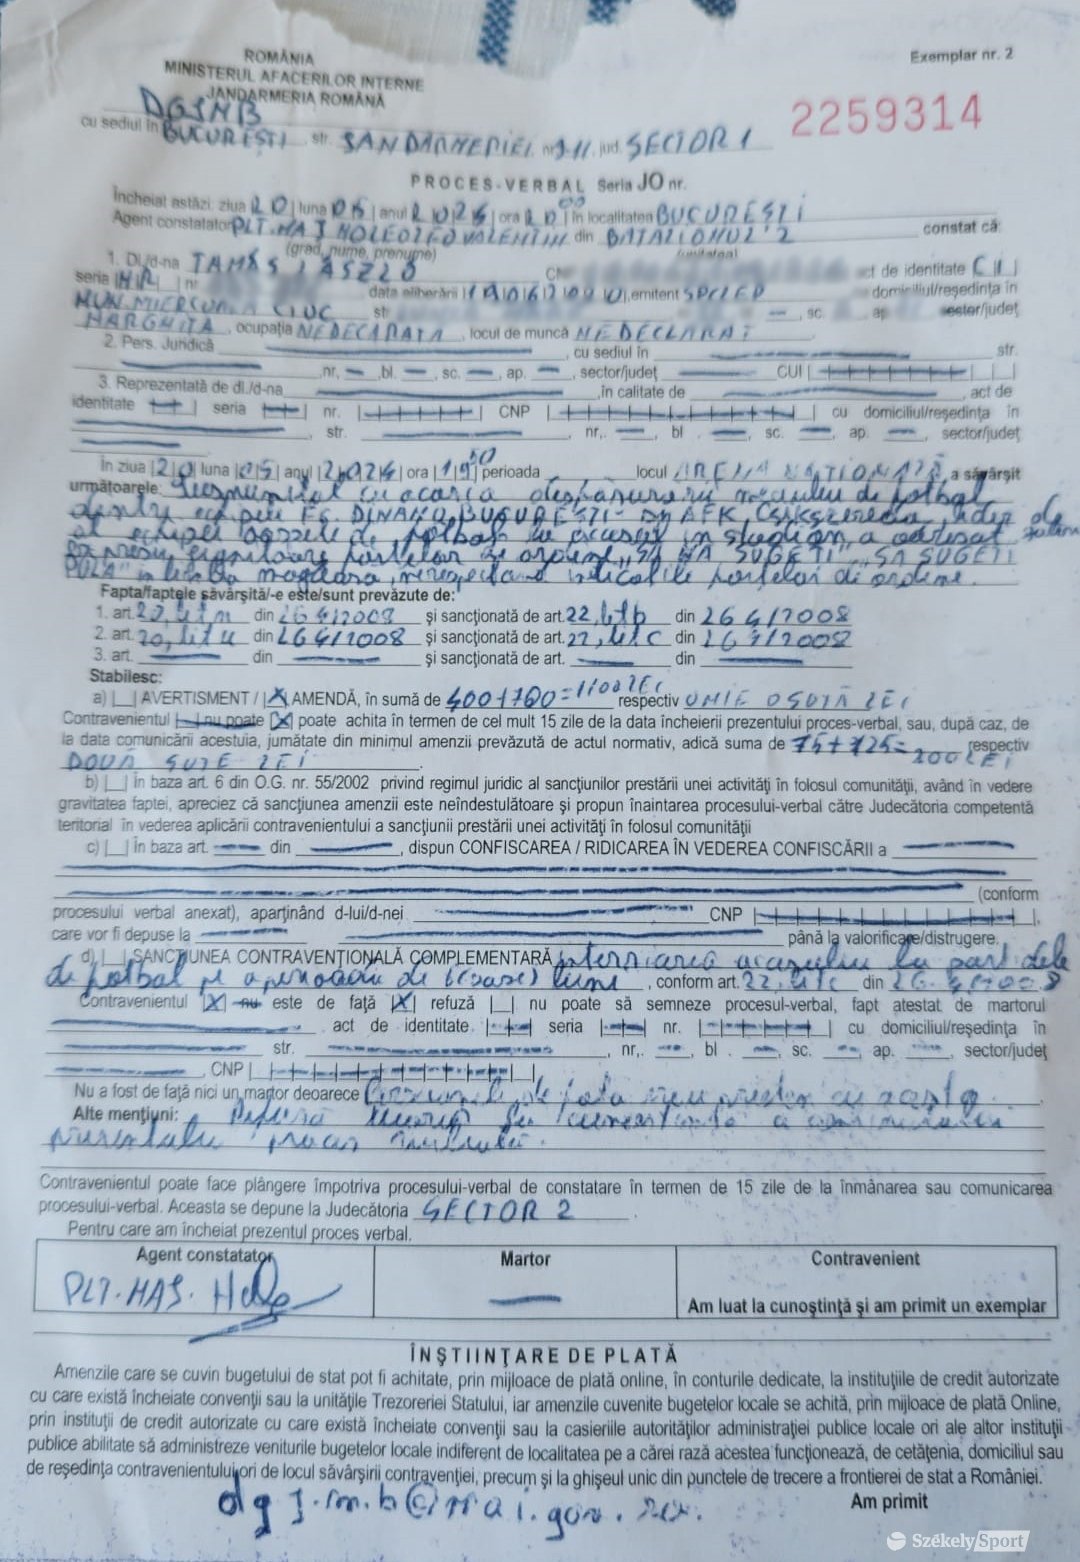 ROMÂNIA
MINISTERUL AFACERILOR INTERNE
JANDARMERIA ROMÂNĂ
Exemplar nr. 2
DGJMB
2259314
cu sediul în BUCUREȘTI, str. JANDARMERIEI nr. 9-11 jud. SECTOR 1
PROCES-VERBAL Seria JO nr.
Încheiat astăzi, ziua 20 luna 05 anul 2024 ora 20 00 în localitatea BUCUREȘTI
Agent constatator PLT. MAJ VALENTIN din BATALIONUL 2 constat că:
(grad, nume, prenume) (unitatea)
1. Dl./d-na TAMÁS LÁSZLÓ CNP act de identitate CI
seria HR nr data eliberării emitent SPCLEP domiciliul/reşedinţa în
MUN. MIERCUREA CIUC str. sc. ap. sector/judeţ
HARGHITA, ocupaţia NEDECARATA, locul de muncă NEDECLARAT
2. Pers. Juridică , cu sediul în str.
, nr, bl. , sc. , ap. , sector/judeţ CUI
3. Reprezentată de dl./d-na , în calitate de , act de
identitate seria nr. CNP cu domiciliul/reşedinţa în
, str. , nr,. bl . sc. ap. , sector/judeţ
În ziua 20 luna 05 anul 2024 ora 19 50 perioada locul ARENA NAȚIONALĂ, a săvârşit
următoarele: cu ocazia desfășurării meciului de fotbal
dintre echipele FC. DINAMO BUCUREȘTI - AFK Csikszereda, lider de
al echipei oaspete de fotbal în stadion, a adresat
expresii jignitoare forțelor de ordine "SĂ MĂ SUGEȚI", "SĂ SUGEȚI
PULA" în limba maghiară, nerespectând indicațiile forțelor de ordine.
Fapta/faptele săvârşită/-e este/sunt prevăzute de:
1. art. 20, lit m din L 4/2008 şi sancţionată de art. 22, lit b din L 4/2008
2. art. 20, lit u din L 4/2008 şi sancţionată de art. 22, lit c din L 4/2008
3. art. din şi sancţionată de art. din
Stabilesc:
a) |_| AVERTISMENT / |X| AMENDĂ, în sumă de 400+700=1100 LEI respectiv UNA MIE O SUTĂ LEI
Contravenientul |_| nu poate |X| poate achita în termen de cel mult 15 zile de la data încheierii prezentului proces-verbal, sau, după caz, de
la data comunicării acestuia, jumătate din minimul amenzii prevăzută de actul normativ, adică suma de 75+125=200 LEI respectiv
DOUĂ SUTE LEI.
b) |_| în baza art. 6 din O.G. nr. 55/2002 privind regimul juridic al sancţiunilor prestării unei activităţi în folosul comunităţii, având în vedere
gravitatea faptei, apreciez că sancţiunea amenzii este neîndestulătoare şi propun înaintarea procesului-verbal către Judecătoria competentă
teritorial în vederea aplicării contravenientului a sancţiunii prestării unei activităţi în folosul comunităţii
c) |_| în baza art. din , dispun CONFISCAREA / RIDICAREA ÎN VEDEREA CONFISCĂRII a
(conform
procesului verbal anexat), aparţinând d-lui/d-nei CNP
care vor fi depuse la până la valorificare/distrugere.
d) |_| SANCŢIUNEA CONTRAVENŢIONALĂ COMPLEMENTARĂ interzicerea accesului la partidele
de fotbal pe o perioadă de 6 (șase) luni, conform art. 22, lit c din L 4/2008
Contravenientul |X| nu este de faţă |X| refuză |_| nu poate să semneze procesul-verbal, fapt atestat de martorul
act de identitate. seria nr. cu domiciliul/reşedinţa în
str. , nr,. bl . sc. ap. , sector/judeţ
, CNP
Nu a fost de faţă nici un martor deoarece de față
Alte menţiuni: Refuză
prezentului proces
Contravenientul poate face plângere împotriva procesului-verbal de constatare în termen de 15 zile de la înmânarea sau comunicarea
procesului-verbal. Aceasta se depune la Judecătoria SECTOR 2.
Pentru care am încheiat prezentul proces verbal.
Agent constatator Martor Contravenient
PLT. MAJ.
Am luat la cunoştinţă şi am primit un exemplar
ÎNŞTIINŢARE DE PLATĂ
Amenzile care se cuvin bugetului de stat pot fi achitate, prin mijloace de plată online, în conturile dedicate, la instituţiile de credit autorizate
cu care există încheiate convenţii sau la unităţile Trezoreriei Statului, iar amenzile cuvenite bugetelor locale se achită, prin mijloace de plată Online,
prin instituţii de credit autorizate cu care există încheiate convenţii sau la casieriile autorităţilor administraţiei publice locale ori ale altor instituţii
publice abilitate să administreze veniturile bugetelor locale indiferent de localitatea pe a cărei rază acestea funcţionează, de cetăţenia, domiciliul sau
de reşedinţa contravenientului ori de locul săvârşirii contravenţiei, precum şi la ghişeul unic din punctele de trecere a frontierei de stat a României.
Am primit
dgj.m.b@mai.gov.ro.
SzékelySport